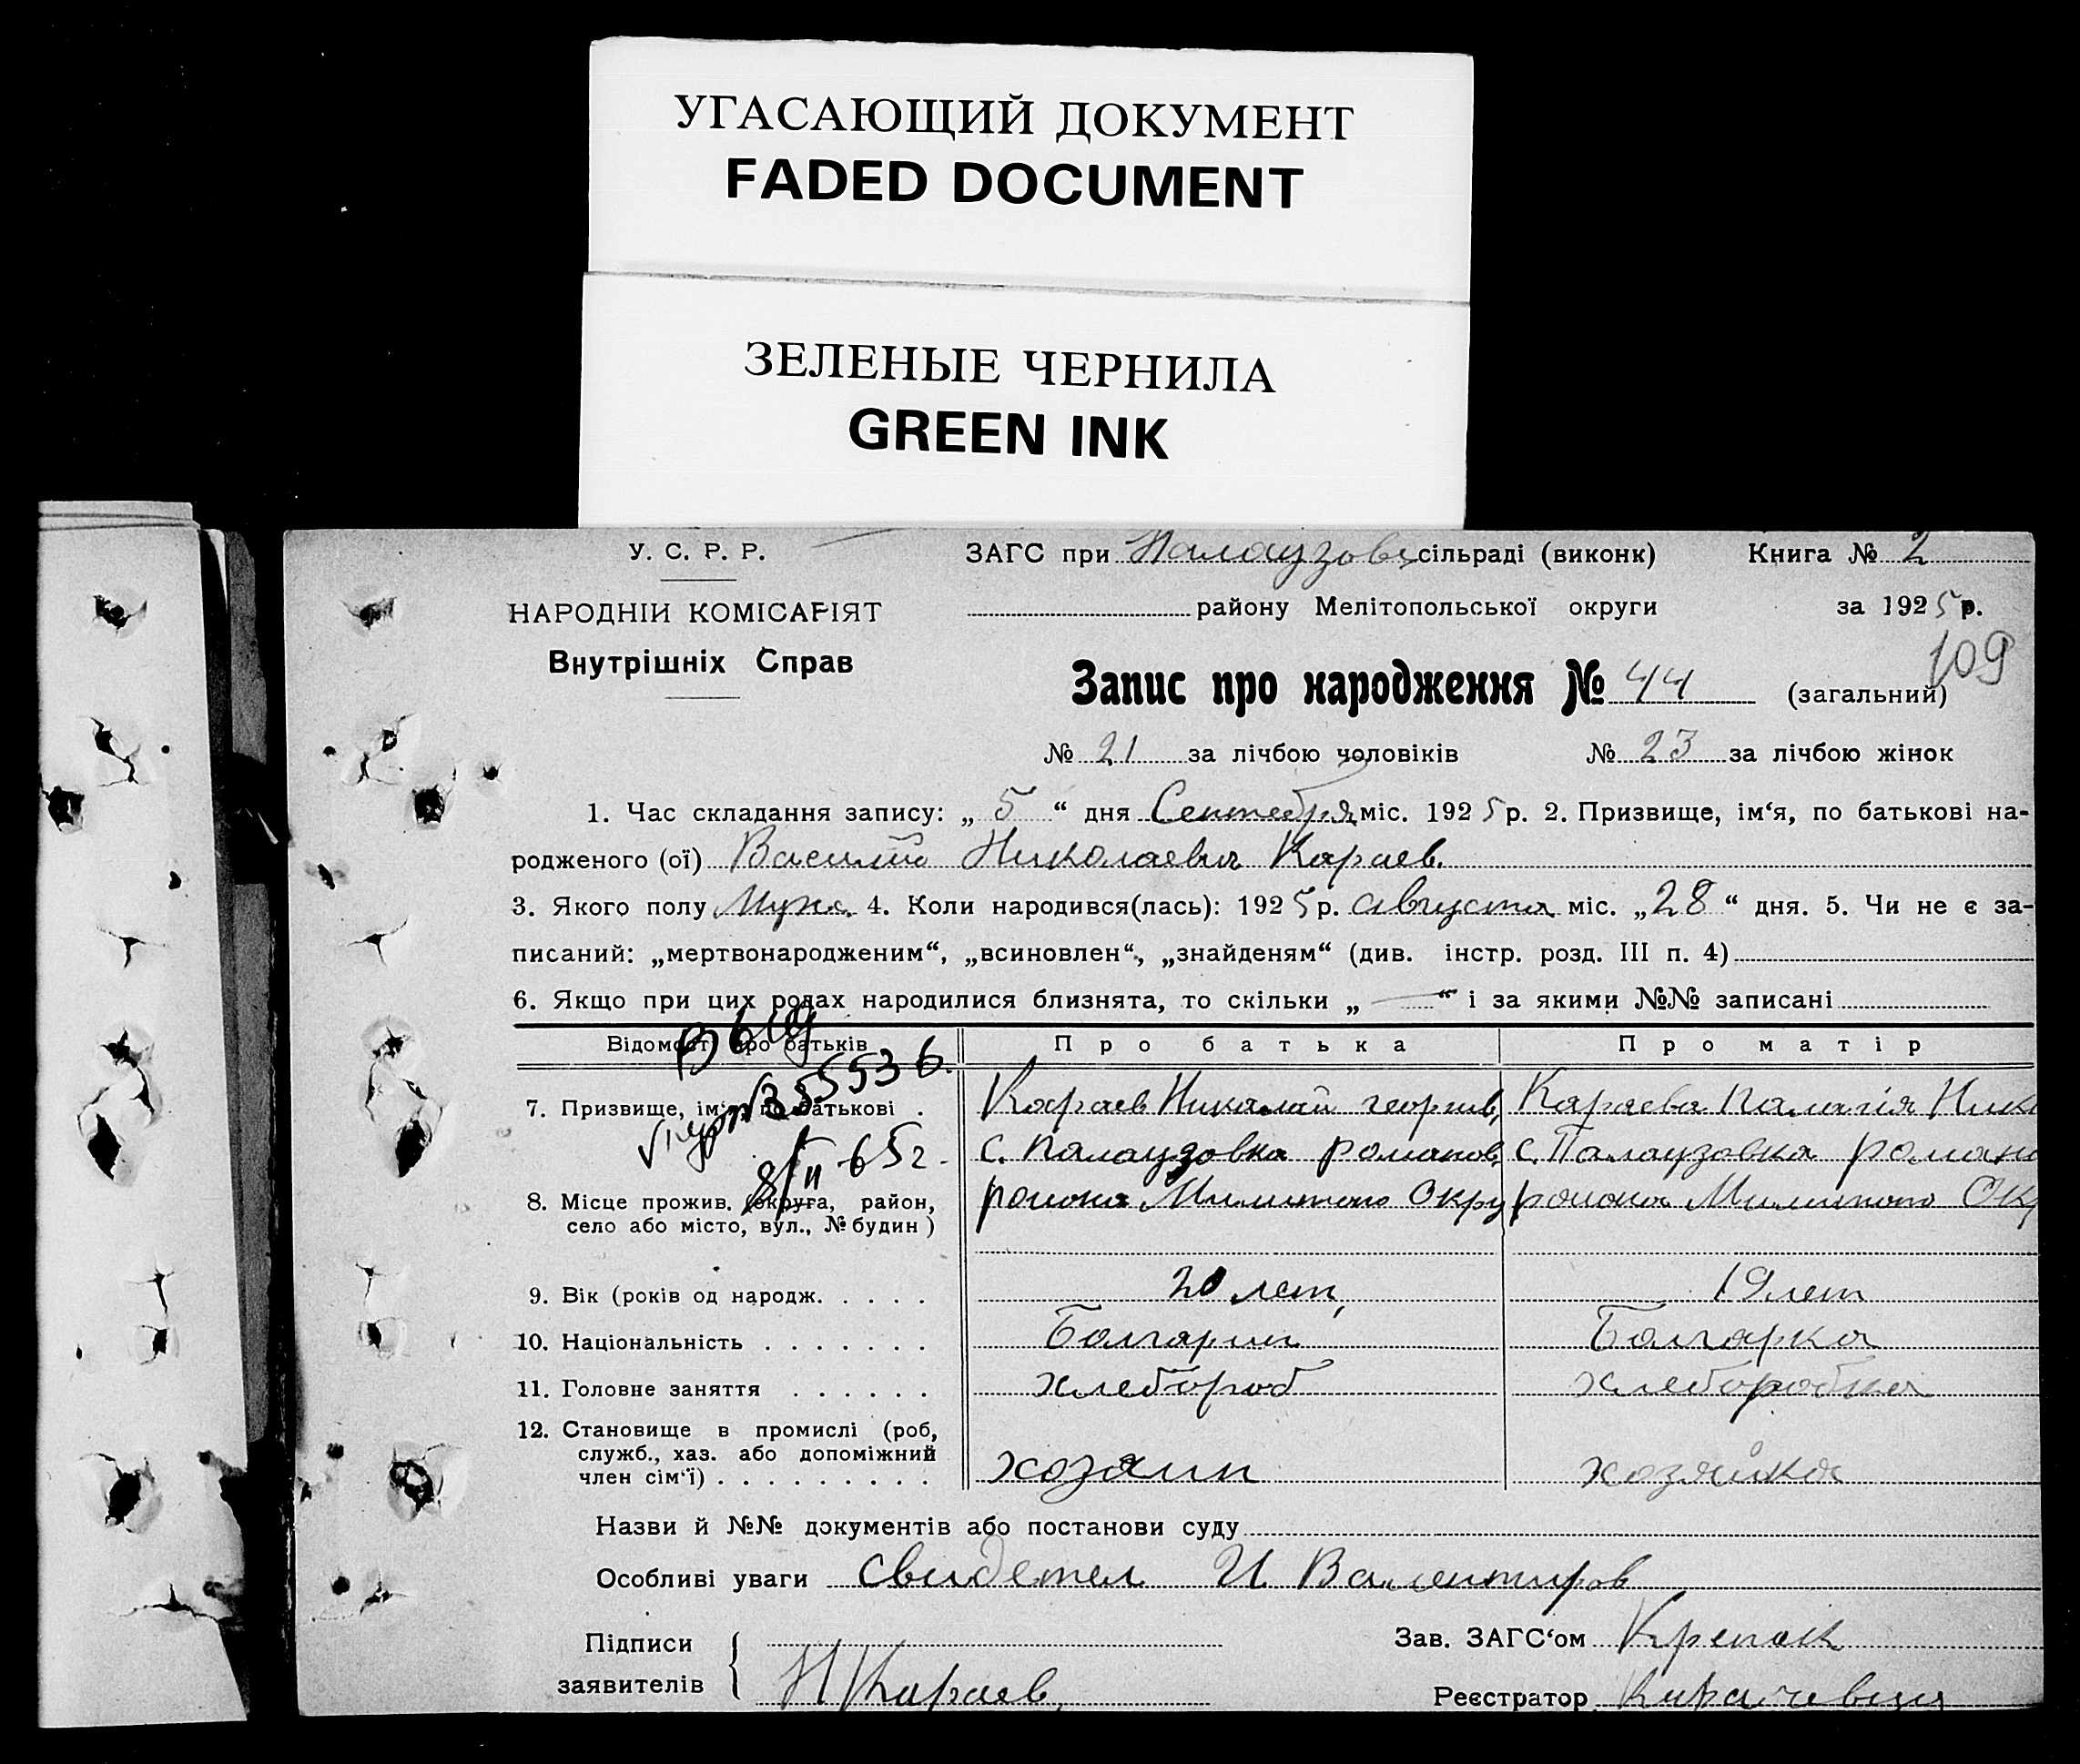 УГАСАЮЩИЙ ДОКУМЕНТ
FADED DOCUMENT
ЗЕЛЕНЫЕ ЧЕРНИЛА
GREEN INK
У. С. Р. Р.
ЗАГС при Палаузовс сільраді (виконк) Книга № 2
НАРОДНІЙ КОМІСАРІЯТ
району Мелітопольської округи за 1925 р.
Внутрішніх Справ
109
Запис про народження № 44 (загальний)
№ 21 за лічбою чоловіків № 23 за лічбою жінок
1. Час складання запису: „ 5 “ дня Сентебря міс. 1925 р. 2. Призвище, ім‘я, по батькові на-
родженого (ої) Василий Николаевич Караев.
3. Якого полу Мужс. 4. Коли народився(лась): 1925 р. августа міс. „28“ дня. 5. Чи не є за-
писаний: „мертвонародженим“, „всиновлен“, „знайденям“ (див. інстр. розд. III п. 4)
6. Якщо при цих родах народилися близнята, то скільки „ — “ і за якими №№ записані
Відомості про батьків Про батька Про матір
7. Призвище, ім‘я, по батькові . Караев Николай георгив, Караева Палагія Ник
355536.
с. Палаузовка романов, с. Палаузовка романо
8/II-65г.
8. Місце прожив. (округа, район, района Милитопо Окру района Милитопо Окр
село або місто, вул., № будин)
9. Вік (років од народж. . . . . 20 лет, 19 лет
10. Національність . . . . . . . Болгарин Болгарка
11. Головне заняття . . . . . . хлебороб хлеборобка
12. Становище в промислі (роб,
служб., хаз. або допоміжний
член сім‘ї) . . . . . . . . . хозяин хозяйка
Назви й №№ документів або постанови суду
Особливі уваги свидетел И Валентиров
Підписи
Зав. ЗАГС‘ом
заявителів Н Караев,
Реєстратор